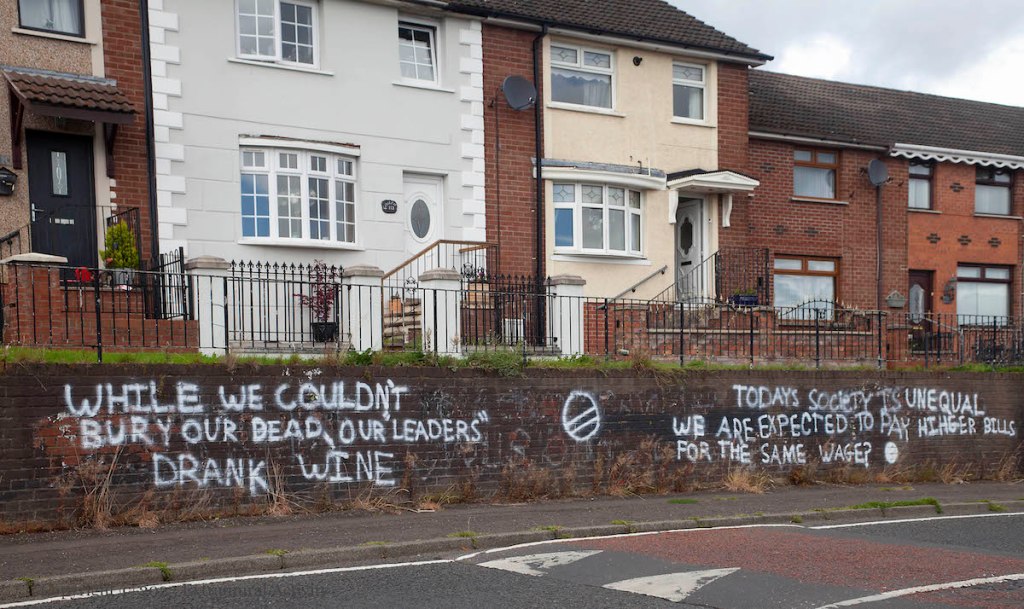 WHILE WE COULDN'T
BURY OUR DEAD, OUR "LEADERS"
DRANK WINE
TODAYS SOCIETY IS UNEQUAL
WE ARE EXPECTED TO PAY HIHGER BILLS
FOR THE SAME WAGE?